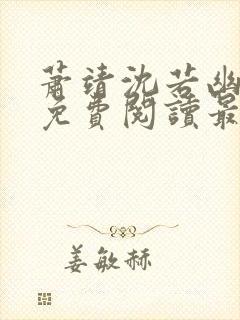 蕭靖沈若幽
免費閱讀最
姜敏赫